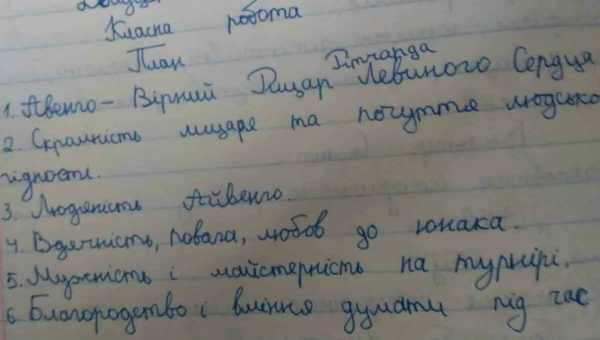 Класна робота
План
Річарда
1. Авенго – Вірний Рицар Левиного Серця
2. Скромність лицаря та почуття людсько
гідності.
3. Людяність Айвенго.
4. Вдячність, повага, любов до юнака.
5. Мужність і майстерність на турнірі.
6. Благородство і вміння думати під час